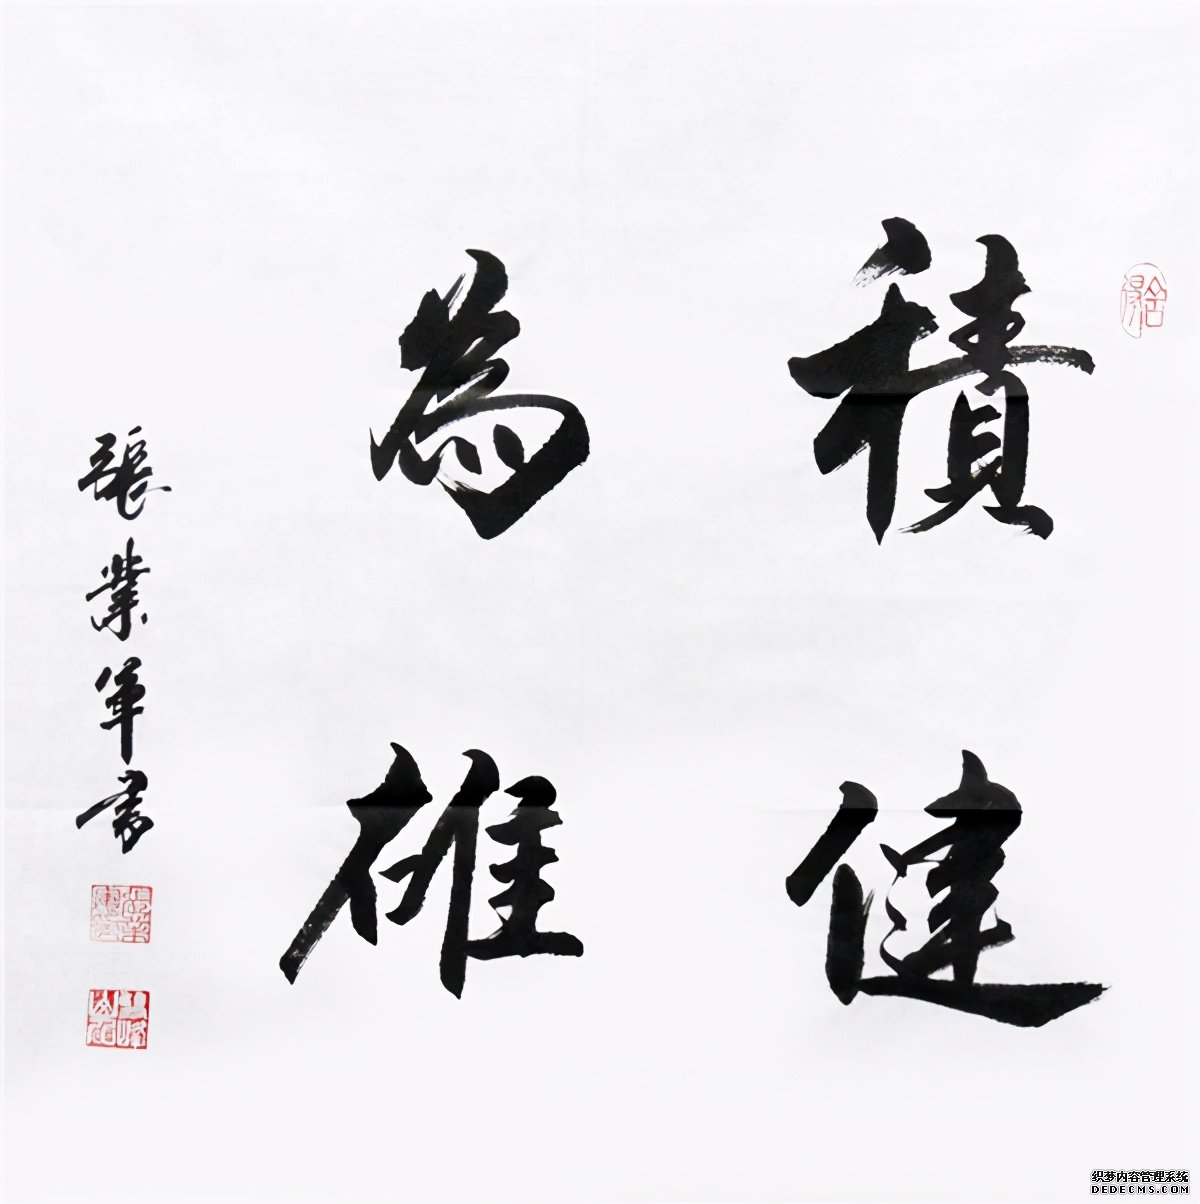 積健
為雄
張業軍書
织梦内容管理系统
DEDECMS.COM